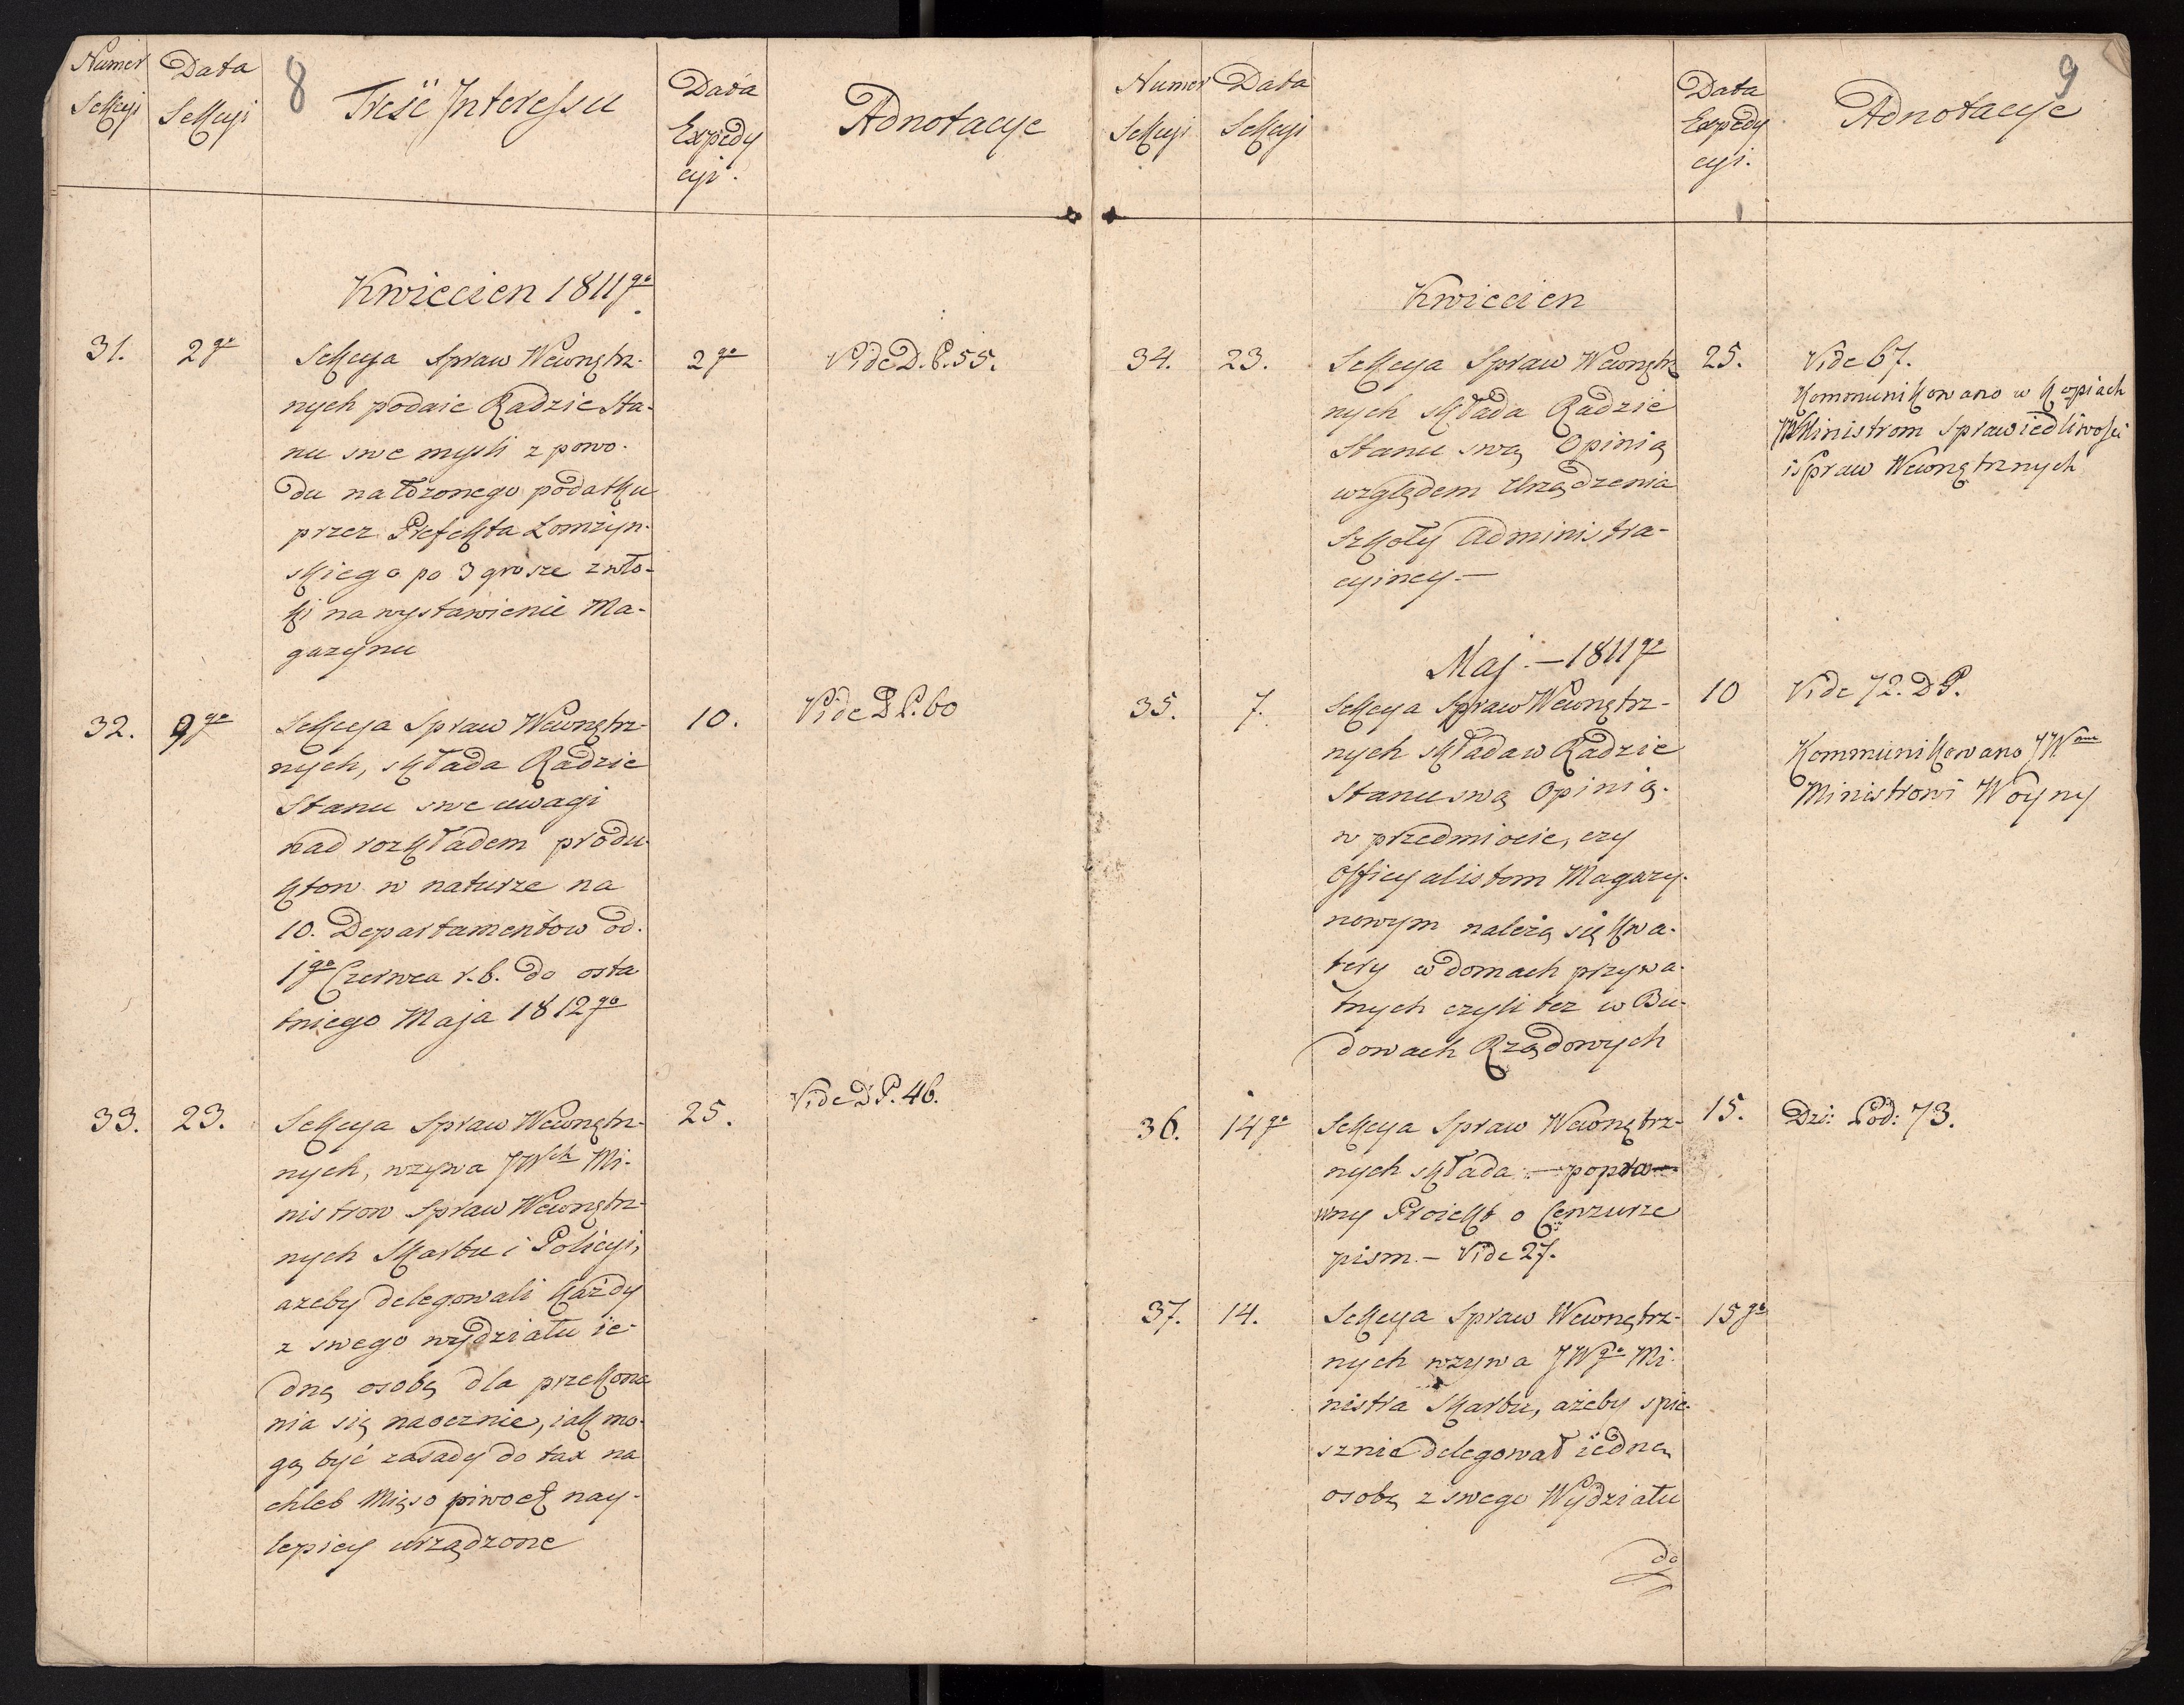 Numer Sekcyi
Data Sekcyi
8
Treść Interessu
Data Expedy
cyi.
Adnotacye
Kwiecien 1811go
31.
2go
Sekcya Spraw Wewnętrz-
nych podaie Radzie Sta-
nu swe mysli z powo-
du nałożonego podatku
przez Prefekta Łomżyn-
skiego po 3 grosze z wło-
ki na wystawienie Ma-
gazynu
2go
Vide D. P. 55.
32.
9go
Sekcya Spraw Wewnętrz-
nych, składa Radzie
Stanu swe uwagi
nad rozkładem produ-
ktow w naturze na
10. Departamentow od.
1go Czerwca r. b. do osta
tniego Maja 1812go
10.
Vide D P. 60
33.
23.
Sekcya Spraw Wewnętrz-
nych, wzywa JWch Mi-
nistrow Spraw Wewnętrz-
nych Skarbu i Policyi,
azeby delegowali każdy
z swego wydziału ie-
dną osobę dla przekona
nia się naocznie, iak mo-
gą być zasady do tax na
chleb Mięso piwo etc nay-
lepiey urządzone
25.
Vide D P. 46.
Numer Sekcyi
Data Sekcyi
Data Expedy
cyi.
Adnotacye
9
Kwiecien
34.
23.
Sekcya Spraw Wewnętrz
nych składa Radzie
Stanu swą Opinią
względem Urządzenia
Szkoły Administra-
cyiney.—
25.
Vide 67.
Kommunikowano w kopiach
JW Ministrom Sprawiedliwości
i Spraw Wewnętrznych
Maj. — 1811go
35.
7.
Sekcya Spraw Wewnętrz-
nych składa w Radzie
Stanu swą Opinią.
w przedmiocie, czy
Officyalistom Magazy-
nowym należą się kwa-
tery w domach prywa-
tnych czyli tez w Bu-
dowach Rządowych
10
Vide 72. D P.
Kommunikowano JWmu
Ministrowi Woyny
36.
14go
Sekcya Spraw Wewnętrz-
nych składa — popra—
wny Proiekt o Cenzurze
pism. — Vide 27.
15.
Dzi: Pod: 73.
37.
14.
Sekcya Spraw Wewnętrz-
nych wzywa JWgo Mi-
nistra Skarbu, ażeby spie-
sznie delegował iedną
osobę z swego Wydziału
do
15go